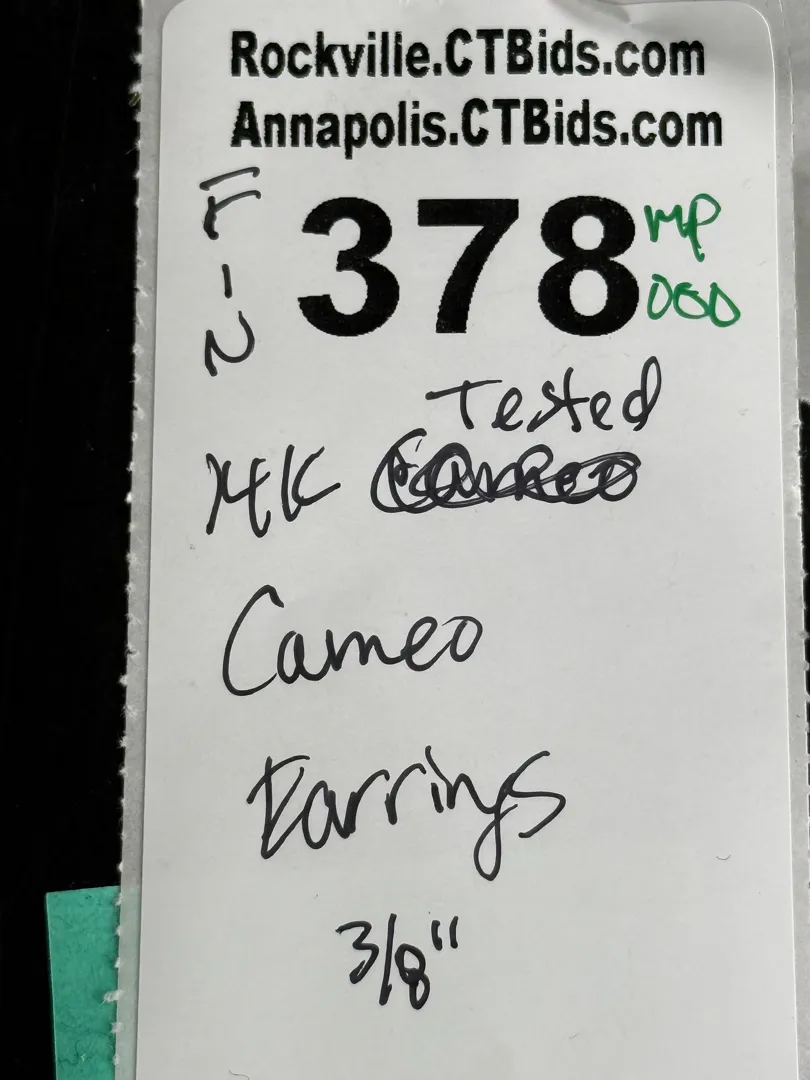 Rockville.CTBids.com
Annapolis.CTBids.com
378
MP
Tested
14K
Cameo
Earrings
3/8"